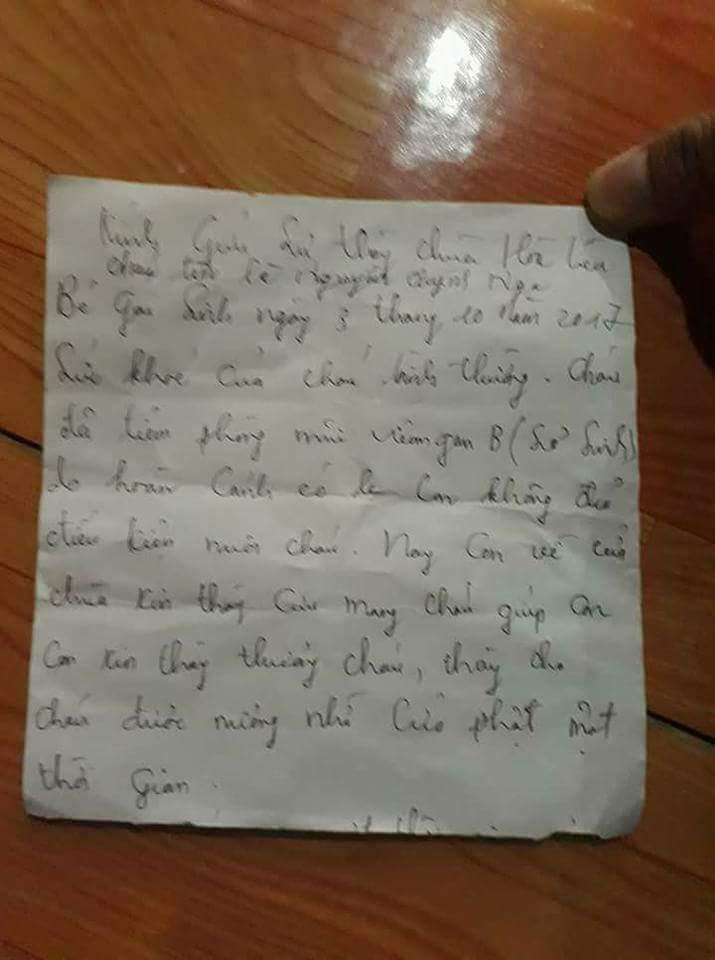 Kính Gửi Sư thầy chùa Hoà Liễu
cháu tên Lê Nguyễn Quỳnh Nga
Bé Gái Sinh ngày 3 tháng 10 năm 2017
Sức khoẻ của cháu bình thường. Cháu
đã tiêm phòng mũi viêm gan B (Sơ Sinh)
do hoàn cảnh có le con không đủ
điều kiện nuôi cháu. Nay con về cửa
chùa xin thầy Cưu mang cháu giúp con
Con xin thầy thương cháu, thầy cho
cháu được nương nhờ Cửa phật một
thời Gian.